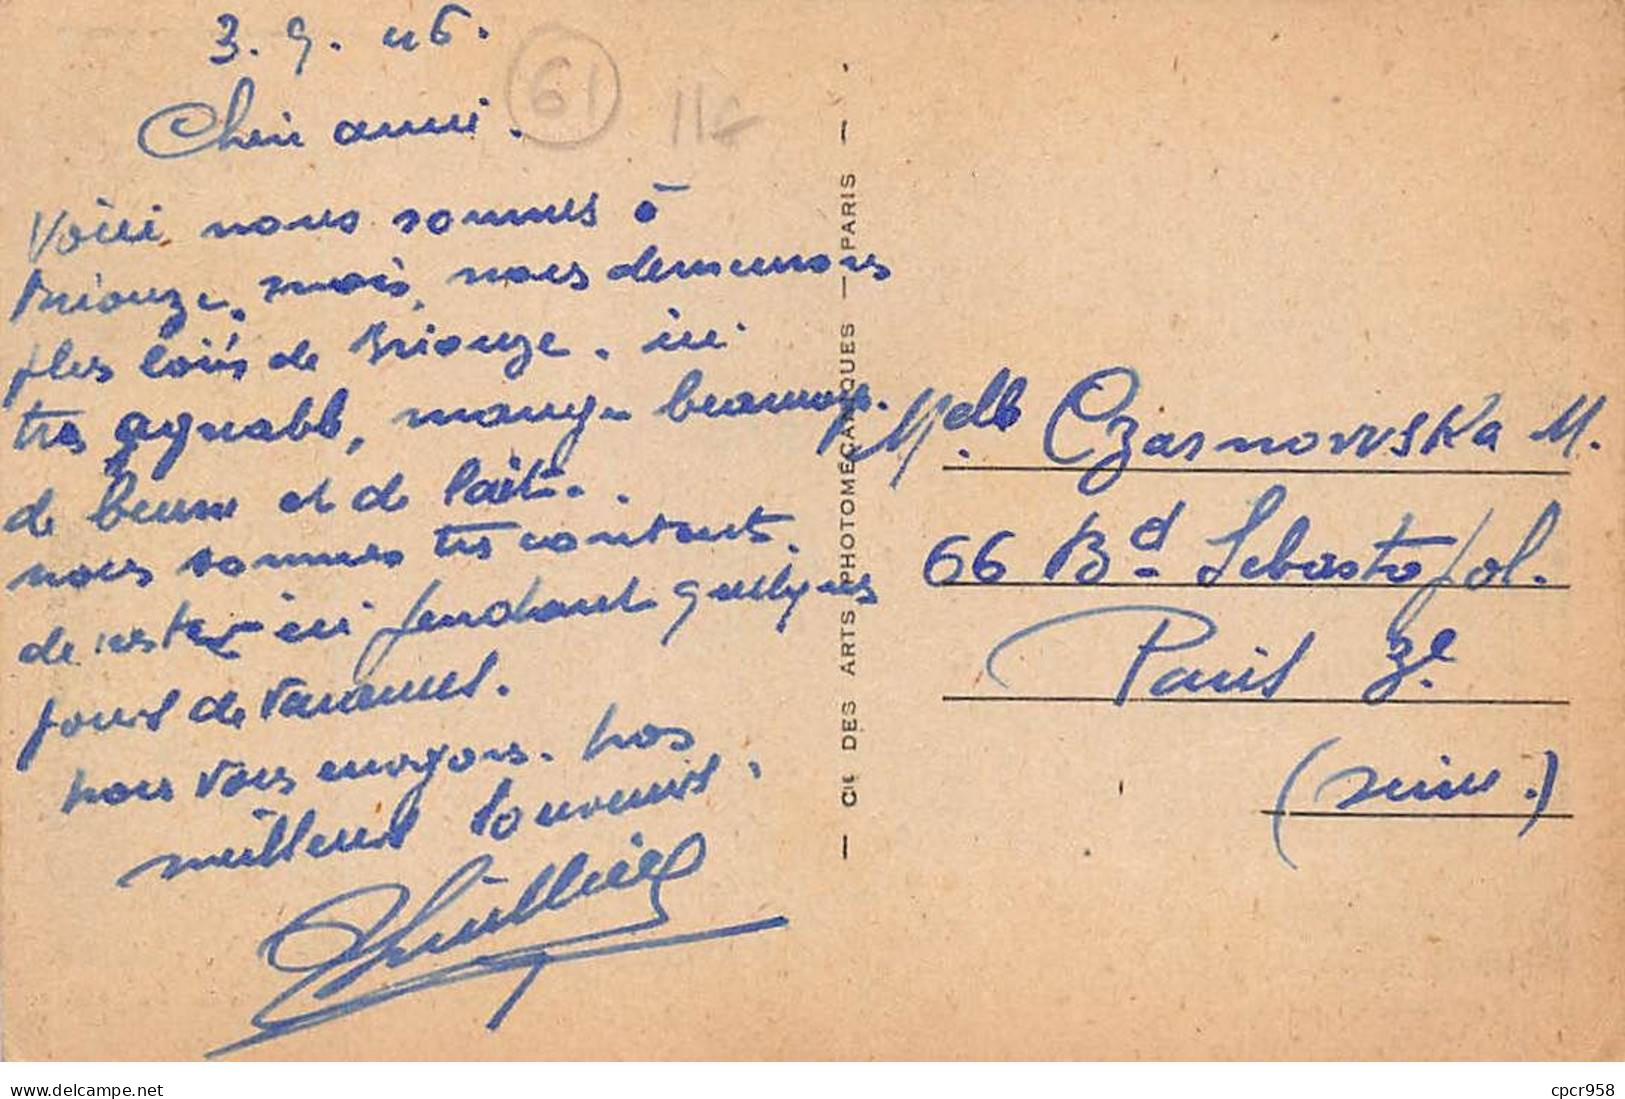 3. 9. 46.
61
Cheie amie.
Voici nous sommes à
Briouze, mais, nous demeurons
plus loin de Briouze. ici
très agréable, mange beaucoup.
de beurre et de lait.
nous sommes très contents.
de rester ici pendant quelques
jours de vacances.
nous vous envoyons. nos
meilleurs souvenirs.
— CIE DES ARTS PHOTOMÉCANIQUES — PARIS —
Melle Czarnowska M.
66 Bd. Sebastopol.
Paris 3e.
(seine.)
delcampe.net
cpcr958